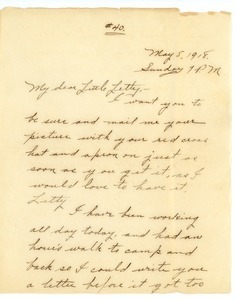 #40.
May 5, 1918.
Sunday 7 P.M
My dear Little Letty,-
I want you to
be sure and mail me your
picture with your red cross
hat and apron on just as
soon as you get it, as I
would love to have it,
Letty
I have been working
all day today, and had an
hours walk to camp and
back so I could write you
a letter before it got too